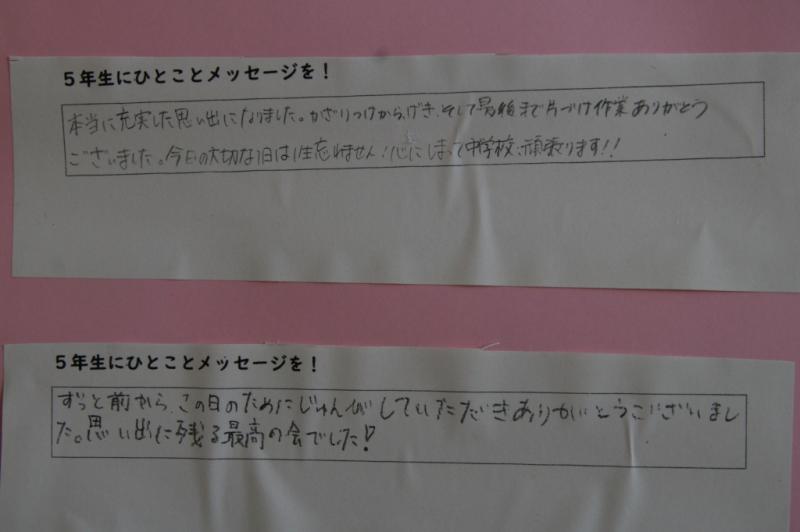 5年生にひとことメッセージを!
本当に充実した思い出になりました。かざりつけから、げき、そして最後まで片づけ作業ありがとう
ございました。今日の大切な1日は1生忘れません!心にしまって中学校、頑張ります!!
5年生にひとことメッセージを!
ずっと前から、この日のためにじゅんびしていただきありがとうございまし
た。思い出に残る最高の会でした!